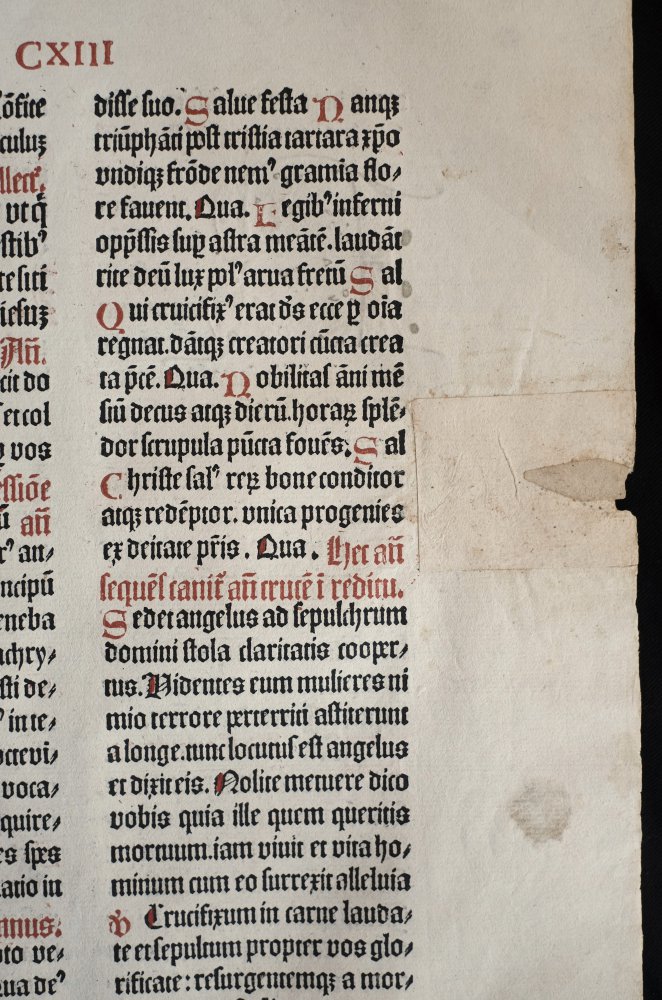 CXIII
ꝯ̄fite
culuꝫ
llect᷒.
vtq̄
stibꝰ
te siti
iesuꝫ
Añ.
cit do
et col
vos
essiōe
ū añ
rꝰ an⸗
ncipū
eneba
achry⸗
sti de⸗
ꝰ in te⸗
octevi⸗
voca⸗
quire⸗
es spes
atio in
nnus.
pto ve⸗
ua deꝰ
disse suo. Salue festa Nanqꝫ
triūphāti post tristia tartara xp̄o
vndiqꝫ frōde nemꝰ gramia flo⸗
re fauent. Qua. Legibꝰ inferni
opp̄ssis suꝑ astra meātē. laudāt
rite deū lux polꝰ arua fretū Sal
Qui crucifixꝰ erat d̄s ecce ꝑ oīa
regnat. dātqꝫ creatori cūcta crea
ta p̄cē. Qua. Nobilitas āni mē
siū decus atqꝫ dierū. horaꝝ splē⸗
dor scrupula pūcta fouēs. Sal
Christe salꝰ reꝝ bone conditor
atqꝫ redēptor. vnica progenies
ex deitate pr̄is. Qua. Hec añ
sequēs canit᷒ añ crucē ī reditu.
Sedet angelus ad sepulchrum
domini stola claritatis cooper⸗
tus. Videntes eum mulieres ni
mio terrore perterriti astiterunt
a longe. tunc locutus est angelus
et dixit eis. Nolite metuere dico
vobis quia ille quem queritis
mortuum. iam viuit et vita ho⸗
minum cum eo surrexit alleluia
℣ Crucifixum in carne lauda⸗
te et sepultum propter vos glo⸗
rificate: resurgentemqꝫ a mor⸗